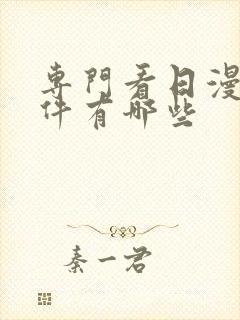 專門看日漫
件有哪些
秦一君